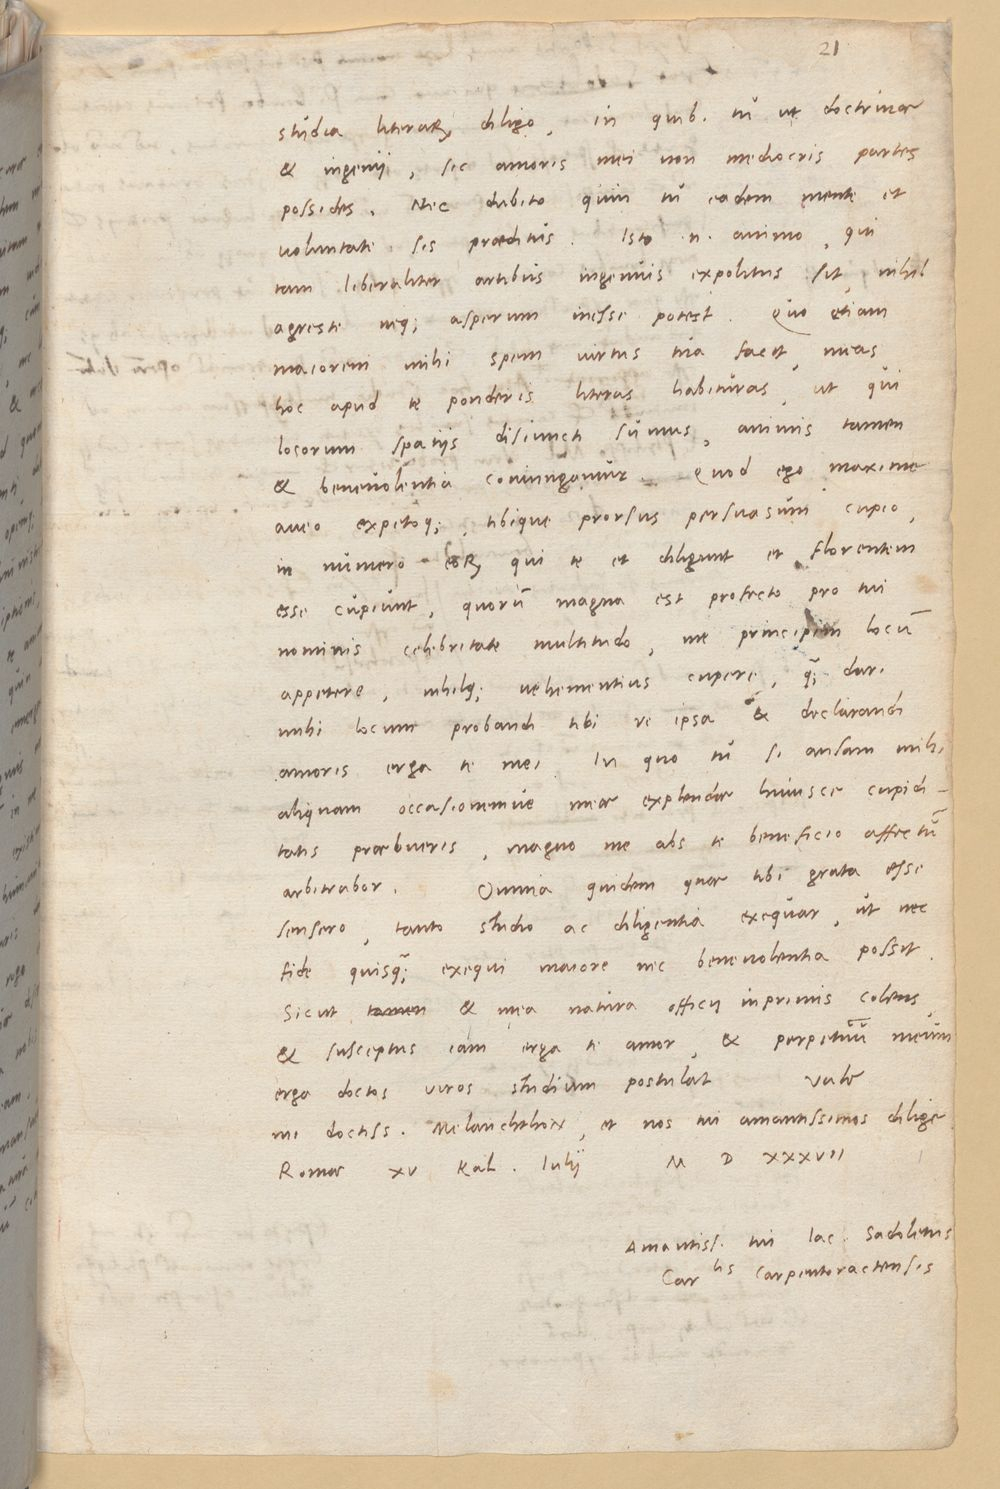 21
studia literaꝝ diligo, in quib. tu ut doctrinæ
& ingenij, sic amoris mei non mediocris partes
possides. Nec dubito quin tu eadem mente et
voluntate sis præditus. Isto .n. animo, qui
tam liberaliter artibus ingenuis expolitus sit, nihil
agreste neq; asperum inesse potest. Quo etiam
maiorem mihi spem virtus tua facit, meas
hoc apud te ponderis literas habituras, ut qui
locorum spatijs disiuncti sumus, animis tamen
& benevolentia coniungamur. Quod ego maxime
aveo expetoq;, tibique prorsus persuasum cupio,
in numero eoꝝ qui te et diligunt et florentem
esse cupiunt, quorū magna est profecto pro tui
nominis celebritate multitudo, me principem locū
appetere, nihilq; vehementius cupere, q̃; dari
mihi locum probandi tibi re ipsa & declarandi
amoris erga te mei. In quo tu si ansam mihi
aliquam occasionemve meæ explendæ huiusce cupidi-
tatis præbueris, magno me abs te beneficio affectū
arbitrabor. Omnia quidem quæ tibi grata esse
sensero, tanto studio ac diligentia exequar, ut nec
fide quisq̃; exequi maiore nec benevolentia possit.
Sicut tamen & mea natura officij inprimis colens,
& susceptus iam erga te amor, & perpetuū meum
erga doctos viros studium postulat Vale
mi doctiss. Melanchthon, et nos tui amantissimos dilige
Romæ XV Kal. Iulij M D XXXVII
Amantiss. tui Iac. Sadoletus
Car lis Carpentoractensis